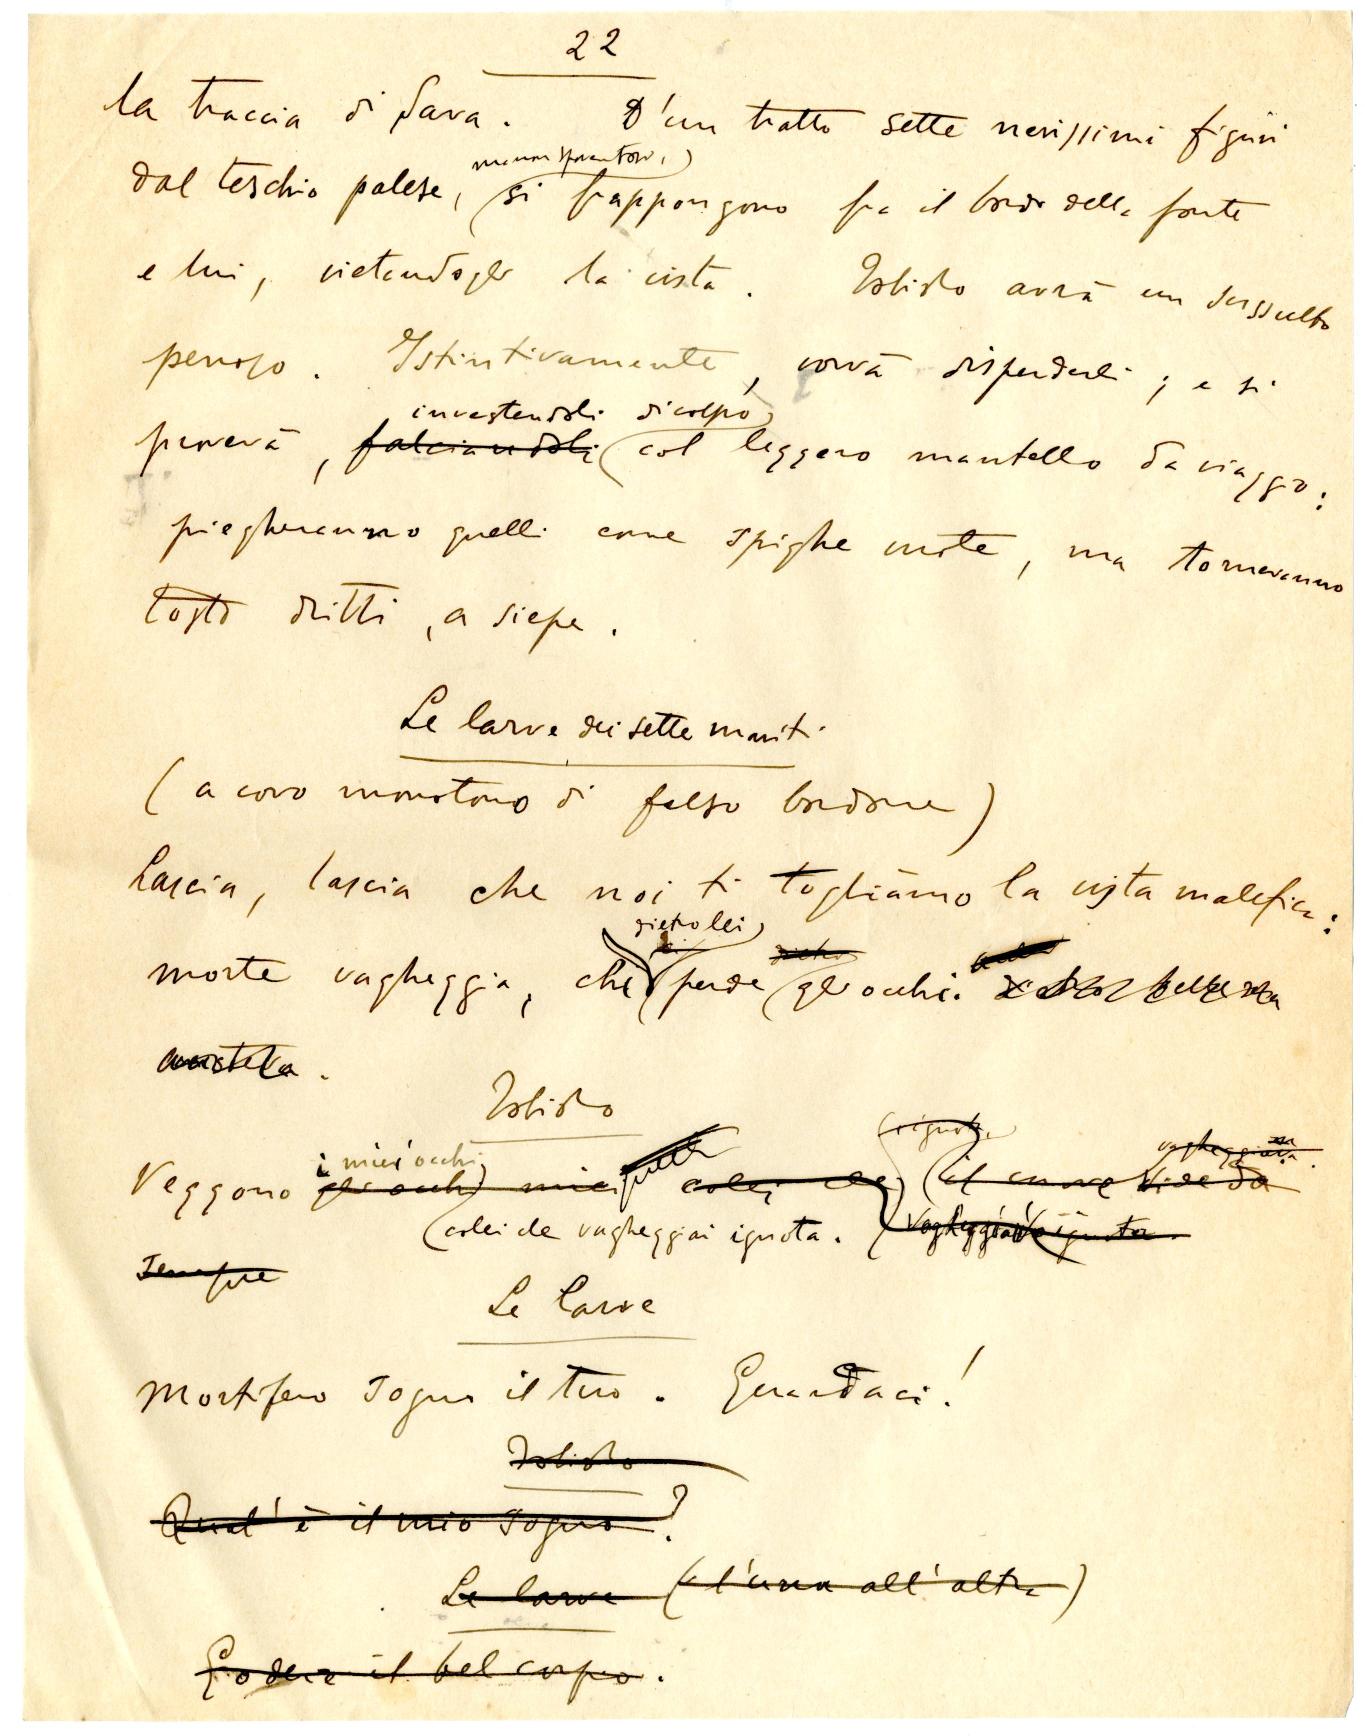 22
la traccia di Sara. D'un tratto sette nerissimi figuri
dal teschio palese, si frappongono fra il bordo della fonte
e lui, vietandogli la vista. Tobiolo avrà un sussulto
penoso. Istintivamente, vorrà disperderli; e si
proverà, falciandoli investendoli di colpo col leggero mantello da viaggio:
piegheranno quelli come spighe vuote, ma torneranno
tosto dritti, a siepe.
Le larve dei sette mariti
(a coro monotono di falso bordone)
Lascia, lascia che noi ti togliamo la vista malefica:
dietro lei
morte vagheggia, chi perde gli occhi. bellezza
Tobiolo
i miei occhi
Veggono gli occhi miei colei che il cuore vide da
colei che vagheggiai ignota. vagheggiavo ignota
sempre
Le larve
Mortifero sogno il tuo. Guardaci!
Tobiolo
Qual'è il mio sogno?
Le larve (l'una all'altra)
Godere il bel corpo.